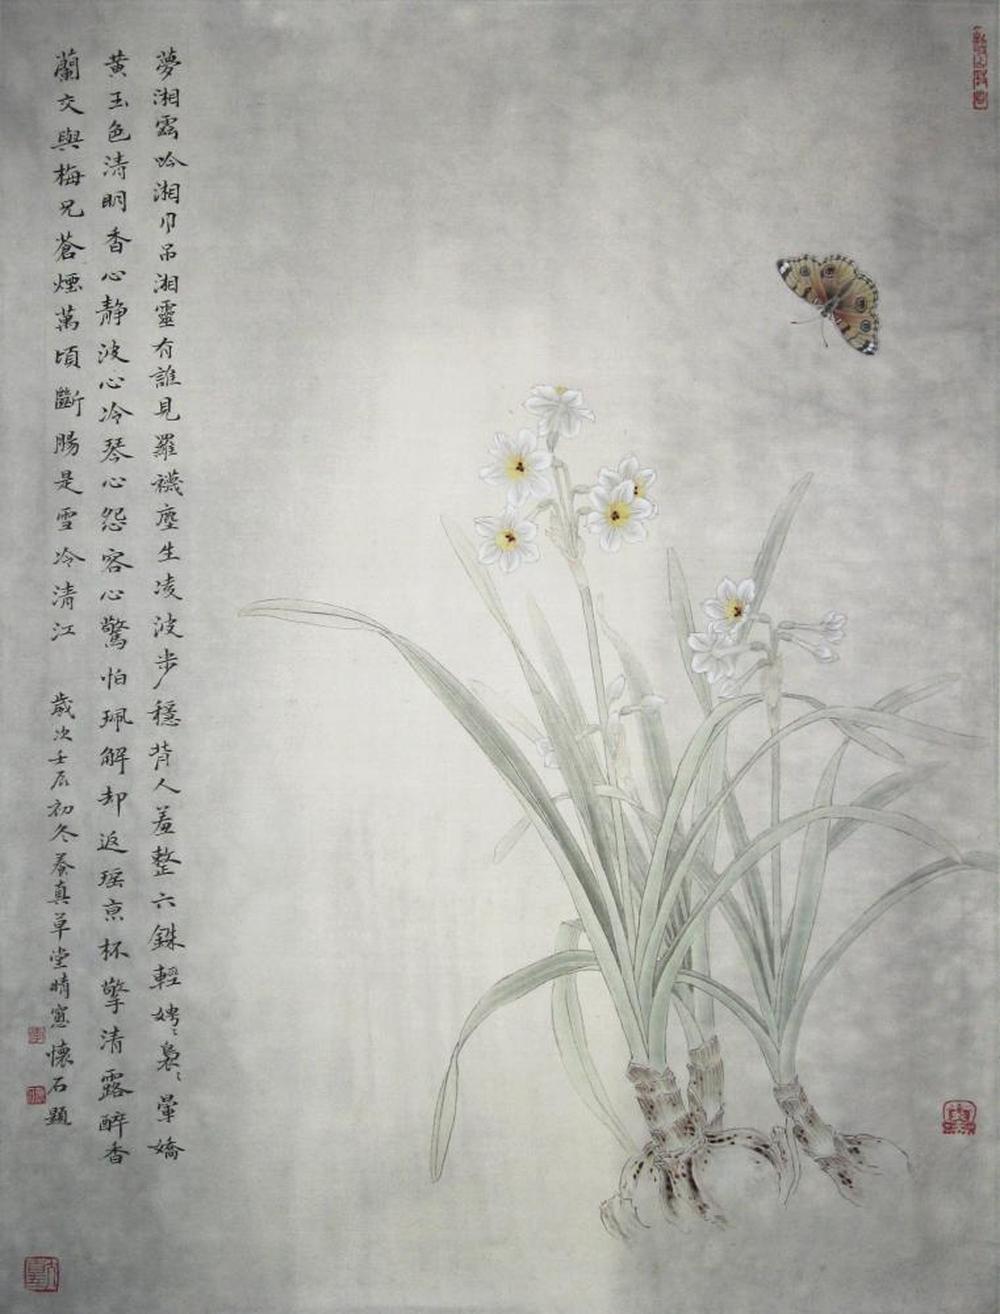 夢湘雲吟湘月吊湘靈有誰見羅襪塵生凌波步穩背人羞整六銖輕娉〻裊〻暈嬌
黄玉色清明香心靜波心冷琴心怨客心驚怕珮解却返瑶京杯擎清露醉香
蘭交與梅兄蒼煙萬頃斷腸是雪冷清江 歲次壬辰初冬養真草堂晴窗懷石題